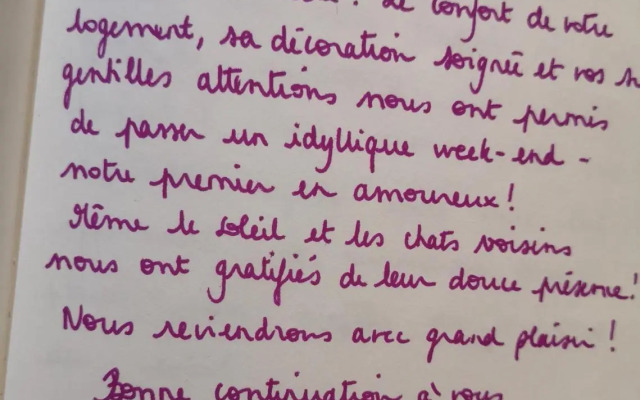 Le confort de votre
logement, sa décoration soignée et vos
gentilles attentions nous ont permis
de passer un idyllique week-end -
notre premier en amoureux!
Même le soleil et les chats voisins
nous ont gratifiés de leur douce présence!
Nous reviendrons avec grand plaisir!
Bonne continuation à vous